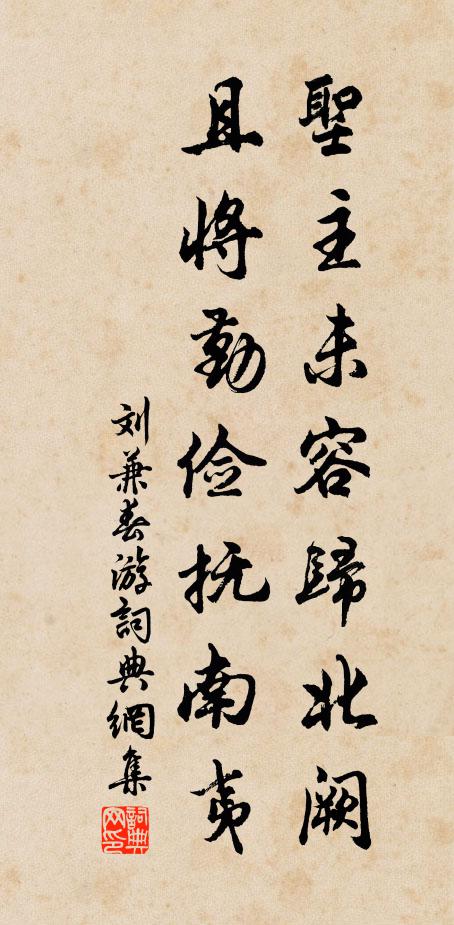 聖主未容歸北闕
且將勤俭抚南夷
刘兼春游詞典網集
詞典网印